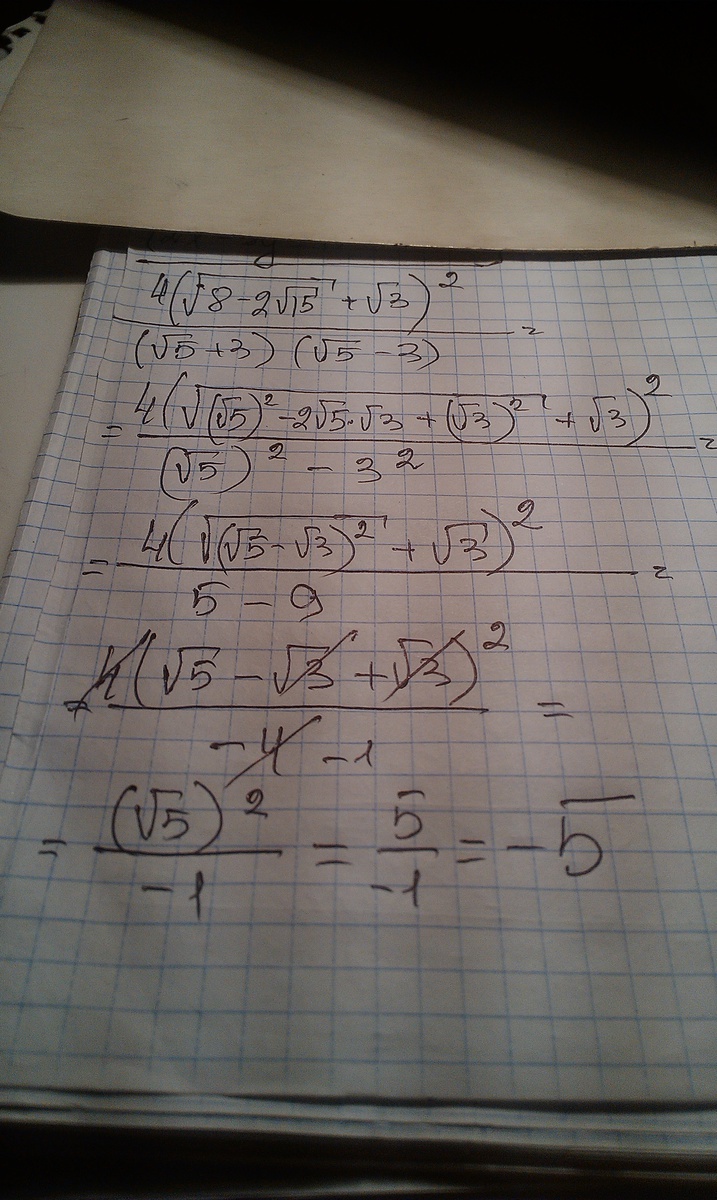 4(√(8-2√15) + √3)²
(√5 + 3) (√5 - 3) =
= 4(√((√5)² - 2√5·√3 + (√3)²) + √3)²
(√5)² - 3² =
= 4(√((√5 - √3)²) + √3)²
5 - 9 =
4(√5 - √3 + √3)²
-4 -1 =
= (√5)² / -1 = 5 / -1 = -5